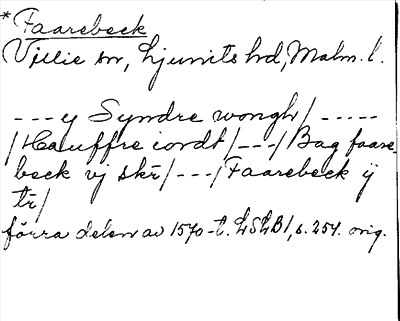 *Faarebeck
Vellie sn, Ljunits hd, Malm. l.
--- y Syndre wongh/ -----
/Hauffre iordt/---/Bag faare-
beck vj skr/---/Faarebeck ij
tr/
förra delen av 1570-t. LSLB1, s. 254. orig.